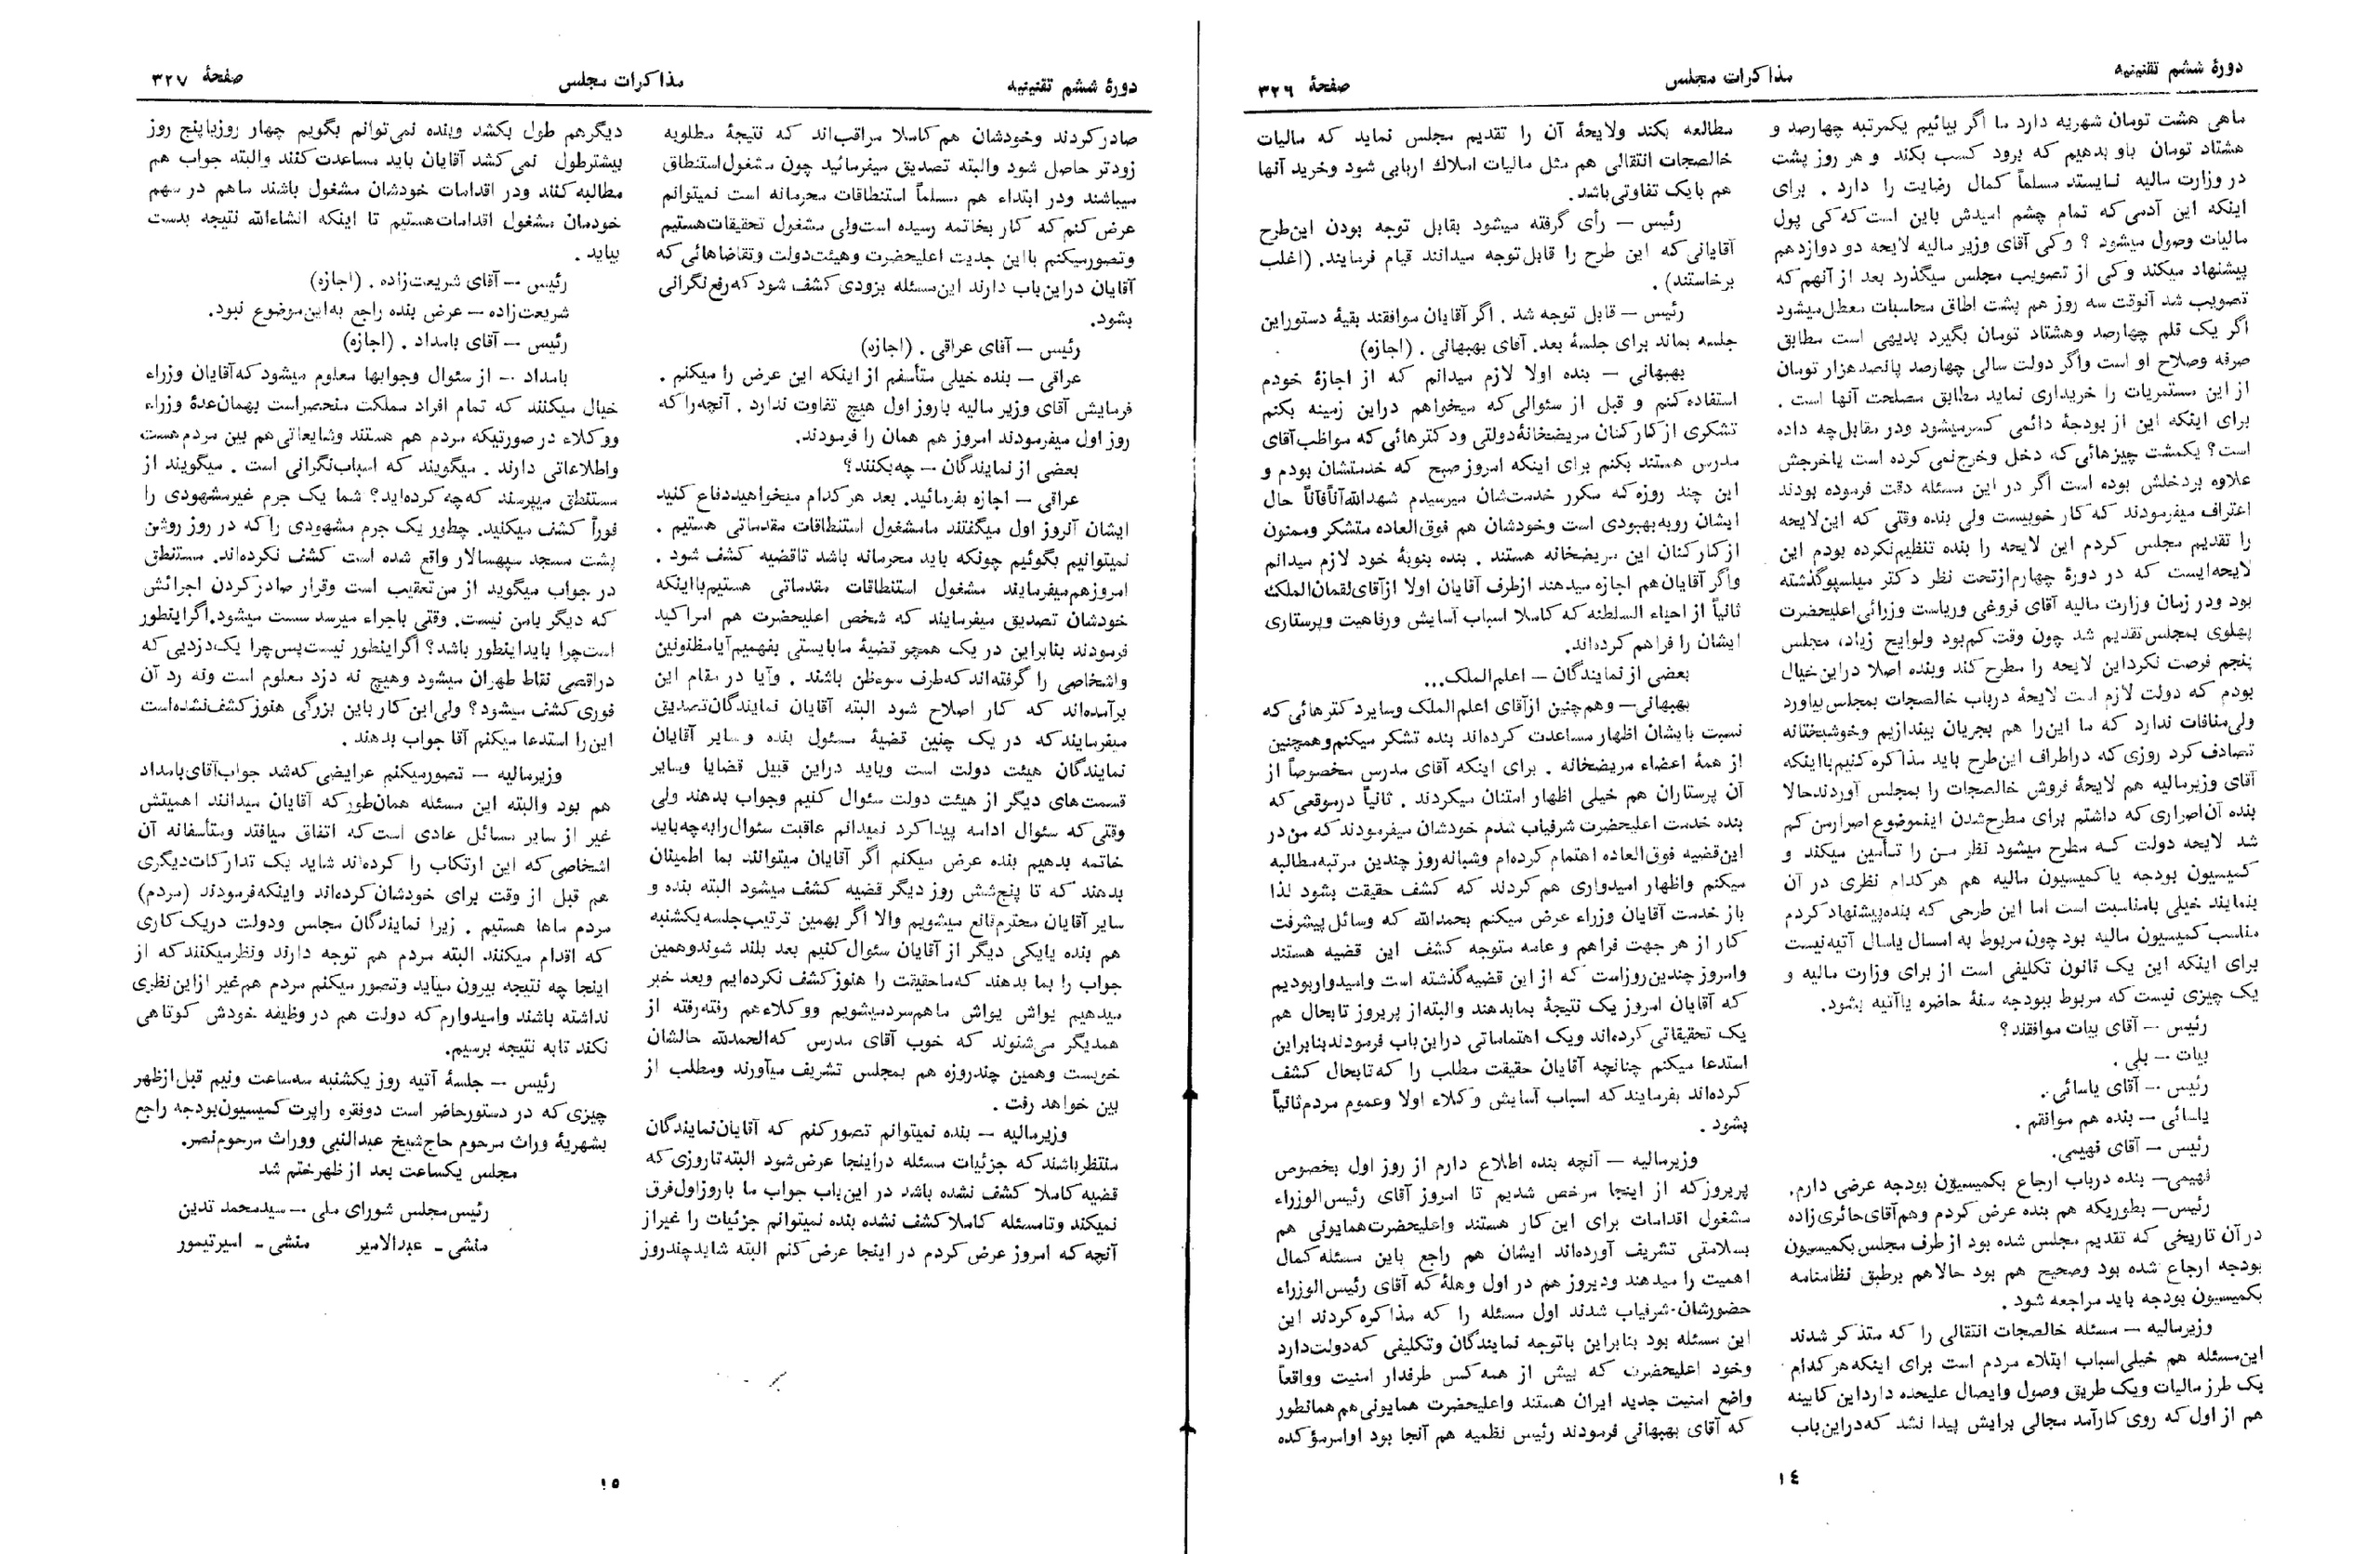 دورهٔ ششم تقنینیه
مذاکرات مجلس
صفحهٔ ۳۲۶
ماهی هشت تومان شهریه دارد ما اگر بیائیم یکمرتبه چهارصد و
هشتاد تومان باو بدهیم که برود کسب بکند و هر روز پشت
در وزارت مالیه نایستد مسلماً کمال رضایت را دارد . برای
اینکه این آدمی که تمام چشم امیدش باین است که کی پول
مالیات وصول میشود ؟ و کی آقای وزیر مالیه لایحه دو دوازدهم
پیشنهاد میکند و کی از تصویب مجلس میگذرد بعد از آنهم که
تصویب شد آنوقت سه روز هم پشت اطاق محاسبات معطل میشود
اگر یک قلم چهارصد وهشتاد تومان بگیرد بدیهی است مطابق
صرفه وصلاح او است واگر دولت سالی چهارصد پانصد هزار تومان
از این مستمریات را خریداری نماید مطابق مصلحت آنها است .
برای اینکه این از بودجهٔ دائمی کسر میشود ودر مقابل چه داده
است؟ یکمشت چیزهائی که دخل وخرج نمی کرده است یاخرجش
علاوه بردخلش بوده است اگر در این مسئله دقت فرموده بودند
اعتراف میفرمودند که کار خوبیست ولی بنده وقتی که این لایحه
را تقدیم مجلس کردم این لایحه را بنده تنظیم نکرده بودم این
لایحه ایست که در دورهٔ چهارم از تحت نظر دکتر میلسپو گذشته
بود ودر زمان وزارت مالیه آقای فروغی وریاست وزرائی اعلیحضرت
پهلوی بمجلس تقدیم شد چون وقت کم بود ولوایح زیاد، مجلس
پنجم فرصت نکرد این لایحه را مطرح کند وبنده اصلا در این خیال
بودم که دولت لازم است لایحهٔ درباب خالصجات بمجلس بیاورد
ولی منافات ندارد که ما این را هم بجریان بیندازیم وخوشبختانه
تصادف کرد روزی که در اطراف این طرح باید مذاکره کنیم با اینکه
آقای وزیر مالیه هم لایحهٔ فروش خالصجات را بمجلس آوردند حالا
بنده آن اصراری که داشتم برای مطرح شدن اینموضوع اصرار من کم
شد لایحه دولت که مطرح میشود نظر من را تأمین میکند و
کمیسیون بودجه یا کمیسیون مالیه هم هر کدام نظری در آن
بنمایند خیلی بامناسبت است اما این طرحی که بنده پیشنهاد کردم
مناسب کمیسیون مالیه بود چون مربوط به امسال یا سال آتیه نیست
برای اینکه این یک قانون تکلیفی است از برای وزارت مالیه و
یک چیزی نیست که مربوط ببودجه سنهٔ حاضره یا آتیه بشود.
رئیس — آقای بیات موافقند؟
بیات — بلی .
رئیس — آقای یاسائی .
یاسائی — بنده هم موافقم .
رئیس — آقای فهیمی.
فهیمی— بنده درباب ارجاع بکمیسیون بودجه عرضی دارم.
رئیس— بطوریکه هم بنده عرض کردم وهم آقای حائری زاده
در آن تاریخی که تقدیم مجلس شده بود از طرف مجلس بکمیسیون
بودجه ارجاع شده بود وصحیح هم بود حالا هم برطبق نظامنامه
بکمیسیون بودجه باید مراجعه شود .
وزیر مالیه — مسئله خالصجات انتقالی را که متذکر شدند
این مسئله هم خیلی اسباب ابتلاء مردم است برای اینکه هر کدام
یک طرز مالیات ویک طریق وصول وایصال علیحده دارد این کابینه
هم از اول که روی کار آمد مجالی برایش پیدا نشد که در این باب
مطالعه بکند ولایحهٔ آن را تقدیم مجلس نماید که مالیات
خالصجات انتقالی هم مثل مالیات املاک اربابی شود وخرید آنها
هم با یک تفاوتی باشد.
رئیس — رأی گرفته میشود بقابل توجه بودن این طرح
آقایانی که این طرح را قابل توجه میدانند قیام فرمایند. (اغلب
برخاستند) .
رئیس — قابل توجه شد . اگر آقایان موافقند بقیهٔ دستور این
جلسه بماند برای جلسهٔ بعد. آقای بهبهانی . (اجازه)
بهبهانی — بنده اولا لازم میدانم که از اجازهٔ خودم
استفاده کنم و قبل از سئوالی که میخواهم در این زمینه بکنم
تشکری از کارکنان مریضخانهٔ دولتی ودکترهائی که مواظب آقای
مدرس هستند بکنم برای اینکه امروز صبح که خدمتشان بودم و
این چند روزه که مکرر خدمتشان میرسیدم شهدالله آناًفآناً حال
ایشان روبه بهبودی است وخودشان هم فوق العاده متشکر وممنون
از کارکنان این مریضخانه هستند . بنده بنوبهٔ خود لازم میدانم
واگر آقایان هم اجازه میدهند از طرف آقایان اولا از آقای لقمان الملک
ثانیاً از احیاء السلطنه که کاملا اسباب آسایش ورفاهیت وپرستاری
ایشان را فراهم کرده اند.
بعضی از نمایندگان — اعلم الملک...
بهبهانی— وهمچنین از آقای اعلم الملک وسایر دکترهائی که
نسبت بایشان اظهار مساعدت کرده اند بنده تشکر میکنم وهمچنین
از همهٔ اعضاء مریضخانه . برای اینکه آقای مدرس مخصوصاً از
آن پرستاران هم خیلی اظهار امتنان میکردند . ثانیاً درموقعی که
بنده خدمت اعلیحضرت شرفیاب شدم خودشان میفرمودند که من در
این قضیه فوق العاده اهتمام کرده ام وشبانه روز چندین مرتبه مطالبه
میکنم واظهار امیدواری هم کردند که کشف حقیقت بشود لذا
باز خدمت آقایان وزراء عرض میکنم بحمدالله که وسائل پیشرفت
کار از هر جهت فراهم و عامه متوجه کشف این قضیه هستند
وامروز چندین روز است که از این قضیه گذشته است وامیدوار بودیم
که آقایان امروز یک نتیجهٔ بمابدهند والبته از پریروز تابحال هم
یک تحقیقاتی کرده اند ویک اهتماماتی در این باب فرمودند بنابراین
استدعا میکنم چنانچه آقایان حقیقت مطلب را که تابحال کشف
کرده اند بفرمایند که اسباب آسایش وکلاء اولا وعموم مردم ثانیاً
بشود .
وزیر مالیه — آنچه بنده اطلاع دارم از روز اول بخصوص
پریروز که از اینجا مرخص شدیم تا امروز آقای رئیس الوزراء
مشغول اقدامات برای این کار هستند واعلیحضرت همایونی هم
بسلامتی تشریف آورده اند ایشان هم راجع باین مسئله کمال
اهمیت را میدهند ودیروز هم در اول وهلهٔ که آقای رئیس الوزراء
حضورشان شرفیاب شدند اول مسئله را که مذاکره کردند این
این مسئله بود بنابراین باتوجه نمایندگان وتکلیفی که دولت دارد
وخود اعلیحضرت که بیش از همه کس طرفدار امنیت وواقعاً
واضع امنیت جدید ایران هستند واعلیحضرت همایونی هم همانطور
که آقای بهبهانی فرمودند رئیس نظمیه هم آنجا بود اوامر مؤکده
۱٤
دورهٔ ششم تقنینیه
مذاکرات مجلس
صفحهٔ ۳۲۷
صادر کردند وخودشان هم کاملا مراقب اند که نتیجهٔ مطلوبه
زودتر حاصل شود والبته تصدیق میفرمائید چون مشغول استنطاق
میباشند ودر ابتداء هم مسلماً استنطاقات محرمانه است نمیتوانم
عرض کنم که کار بخاتمه رسیده است ولی مشغول تحقیقات هستیم
وتصور میکنم با این جدیت اعلیحضرت وهیئت دولت وتقاضاهائی که
آقایان در این باب دارند این مسئله بزودی کشف شود که رفع نگرانی
بشود.
رئیس — آقای عراقی . (اجازه)
عراقی — بنده خیلی متأسفم از اینکه این عرض را میکنم .
فرمایش آقای وزیر مالیه با روز اول هیچ تفاوت ندارد . آنچه را که
روز اول میفرمودند امروز هم همان را فرمودند.
بعضی از نمایندگان — چه بکنند؟
عراقی — اجازه بفرمائید. بعد هر کدام میخواهید دفاع کنید
ایشان آنروز اول میگفتند ما مشغول استنطاقات مقدماتی هستیم .
نمیتوانیم بگوئیم چونکه باید محرمانه باشد تا قضیه کشف شود .
امروز هم میفرمایند مشغول استنطاقات مقدماتی هستیم با اینکه
خودشان تصدیق میفرمایند که شخص اعلیحضرت هم امر اکید
فرمودند بنابراین در یک همچو قضیهٔ ما بایستی بفهمیم آیا مظنونین
واشخاصی را گرفته اند که طرف سوءظن باشند . وآیا در مقام این
برآمده اند که کار اصلاح شود البته آقایان نمایندگان تصدیق
میفرمایند که در یک چنین قضیهٔ مسئول بنده و سایر آقایان
نمایندگان هیئت دولت است وباید در این قبیل قضایا وسایر
قسمت های دیگر از هیئت دولت سئوال کنیم وجواب بدهند ولی
وقتی که سئوال ادامه پیدا کرد نمیدانم عاقبت سئوال را به چه باید
خاتمه بدهیم بنده عرض میکنم اگر آقایان میتوانند بما اطمینان
بدهند که تا پنج شش روز دیگر قضیه کشف میشود البته بنده و
سایر آقایان محترم قانع میشویم والا اگر بهمین ترتیب جلسه یکشنبه
هم بنده یایکی دیگر از آقایان سئوال کنیم بعد بلند شوند وهمین
جواب را بما بدهند که ما حقیقت را هنوز کشف نکرده ایم وبعد خبر
میدهیم یواش یواش ماهم سرد میشویم ووکلاء هم رفته رفته از
همدیگر می شنوند که خوب آقای مدرس که الحمدلله حالشان
خوبست وهمین چند روزه هم بمجلس تشریف میآورند ومطلب از
بین خواهد رفت .
وزیر مالیه — بنده نمیتوانم تصور کنم که آقایان نمایندگان
منتظر باشند که جزئیات مسئله در اینجا عرض شود البته تا روزی که
قضیه کاملا کشف نشده باشد در این باب جواب ما با روز اول فرق
نمیکند وتا مسئله کاملا کشف نشده بنده نمیتوانم جزئیات را غیر از
آنچه که امروز عرض کردم در اینجا عرض کنم البته شاید چند روز
دیگر هم طول بکشد وبنده نمی توانم بگویم چهار روز یا پنج روز
بیشتر طول نمی کشد آقایان باید مساعدت کنند والبته جواب هم
مطالبه کنند ودر اقدامات خودشان مشغول باشند ماهم در سهم
خودمان مشغول اقدامات هستیم تا اینکه انشاءالله نتیجه بدست
بیاید .
رئیس — آقای شریعت زاده . (اجازه)
شریعت زاده — عرض بنده راجع به این موضوع نبود.
رئیس — آقای بامداد . (اجازه)
بامداد — از سئوال وجوابها معلوم میشود که آقایان وزراء
خیال میکنند که تمام افراد مملکت منحصر است بهمان عدهٔ وزراء
ووکلاء در صورتیکه مردم هم هستند وشایعاتی هم بین مردم هست
واطلاعاتی دارند . میگویند که اسباب نگرانی است . میگویند از
مستنطق میپرسند که چه کرده اید؟ شما یک جرم غیر مشهودی را
فوراً کشف میکنید. چطور یک جرم مشهودی را که در روز روشن
پشت مسجد سپهسالار واقع شده است کشف نکرده اند. مستنطق
در جواب میگوید از من تعقیب است وقرار صادر کردن اجرائش
که دیگر بامن نیست. وقتی باجراء میرسد سست میشود. اگر اینطور
است چرا باید اینطور باشد؟ اگر اینطور نیست پس چرا یک دزدیی که
در اقصی نقاط طهران میشود وهیچ نه دزد معلوم است ونه رد آن
فوری کشف میشود؟ ولی این کار باین بزرگی هنوز کشف نشده است
این را استدعا میکنم آقا جواب بدهند .
وزیر مالیه — تصور میکنم عرایضی که شد جواب آقای بامداد
هم بود والبته این مسئله همان طور که آقایان میدانند اهمیتش
غیر از سایر مسائل عادی است که اتفاق میافتد ومتأسفانه آن
اشخاصی که این ارتکاب را کرده اند شاید یک تدارکات دیگری
هم قبل از وقت برای خودشان کرده اند واینکه فرمودند (مردم)
مردم ماها هستیم . زیرا نمایندگان مجلس ودولت در یک کاری
که اقدام میکنند البته مردم هم توجه دارند ونظر میکنند که از
اینجا چه نتیجه بیرون میآید وتصور میکنم مردم هم غیر از این نظری
نداشته باشند وامیدوارم که دولت هم در وظیفه خودش کوتاهی
نکند تا به نتیجه برسیم.
رئیس — جلسهٔ آتیه روز یکشنبه سه ساعت ونیم قبل از ظهر
چیزی که در دستور حاضر است دو فقره راپرت کمیسیون بودجه راجع
بشهریهٔ وراث مرحوم حاج شیخ عبدالنبی ووراث مرحوم نصر.
مجلس یکساعت بعد از ظهر ختم شد
رئیس مجلس شورای ملی — سید محمد تدین
منشی ـ عبدالامیر منشی ـ امیر تیمور
۱٥